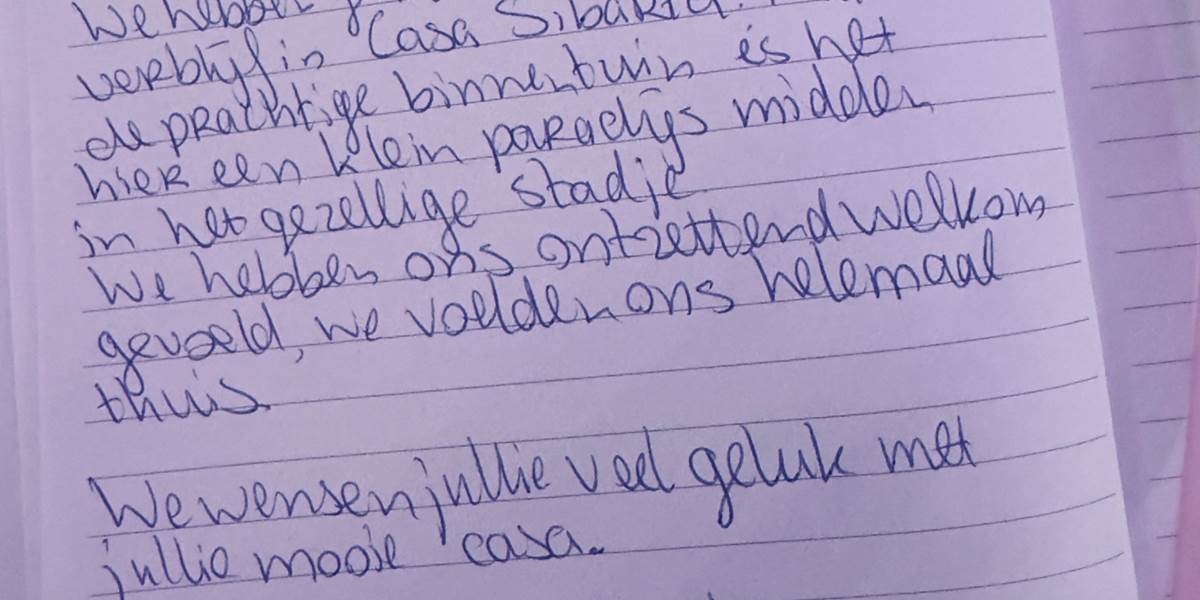 We hebben
verblijf in Casa
de prachtige binnentuin is het
hier een klein paradijs midden
in het gezellige stadje
We hebben ons ontzettend welkom
gevoeld, we voelden ons helemaal
thuis.
We wensen jullie veel geluk met
jullie mooie casa.